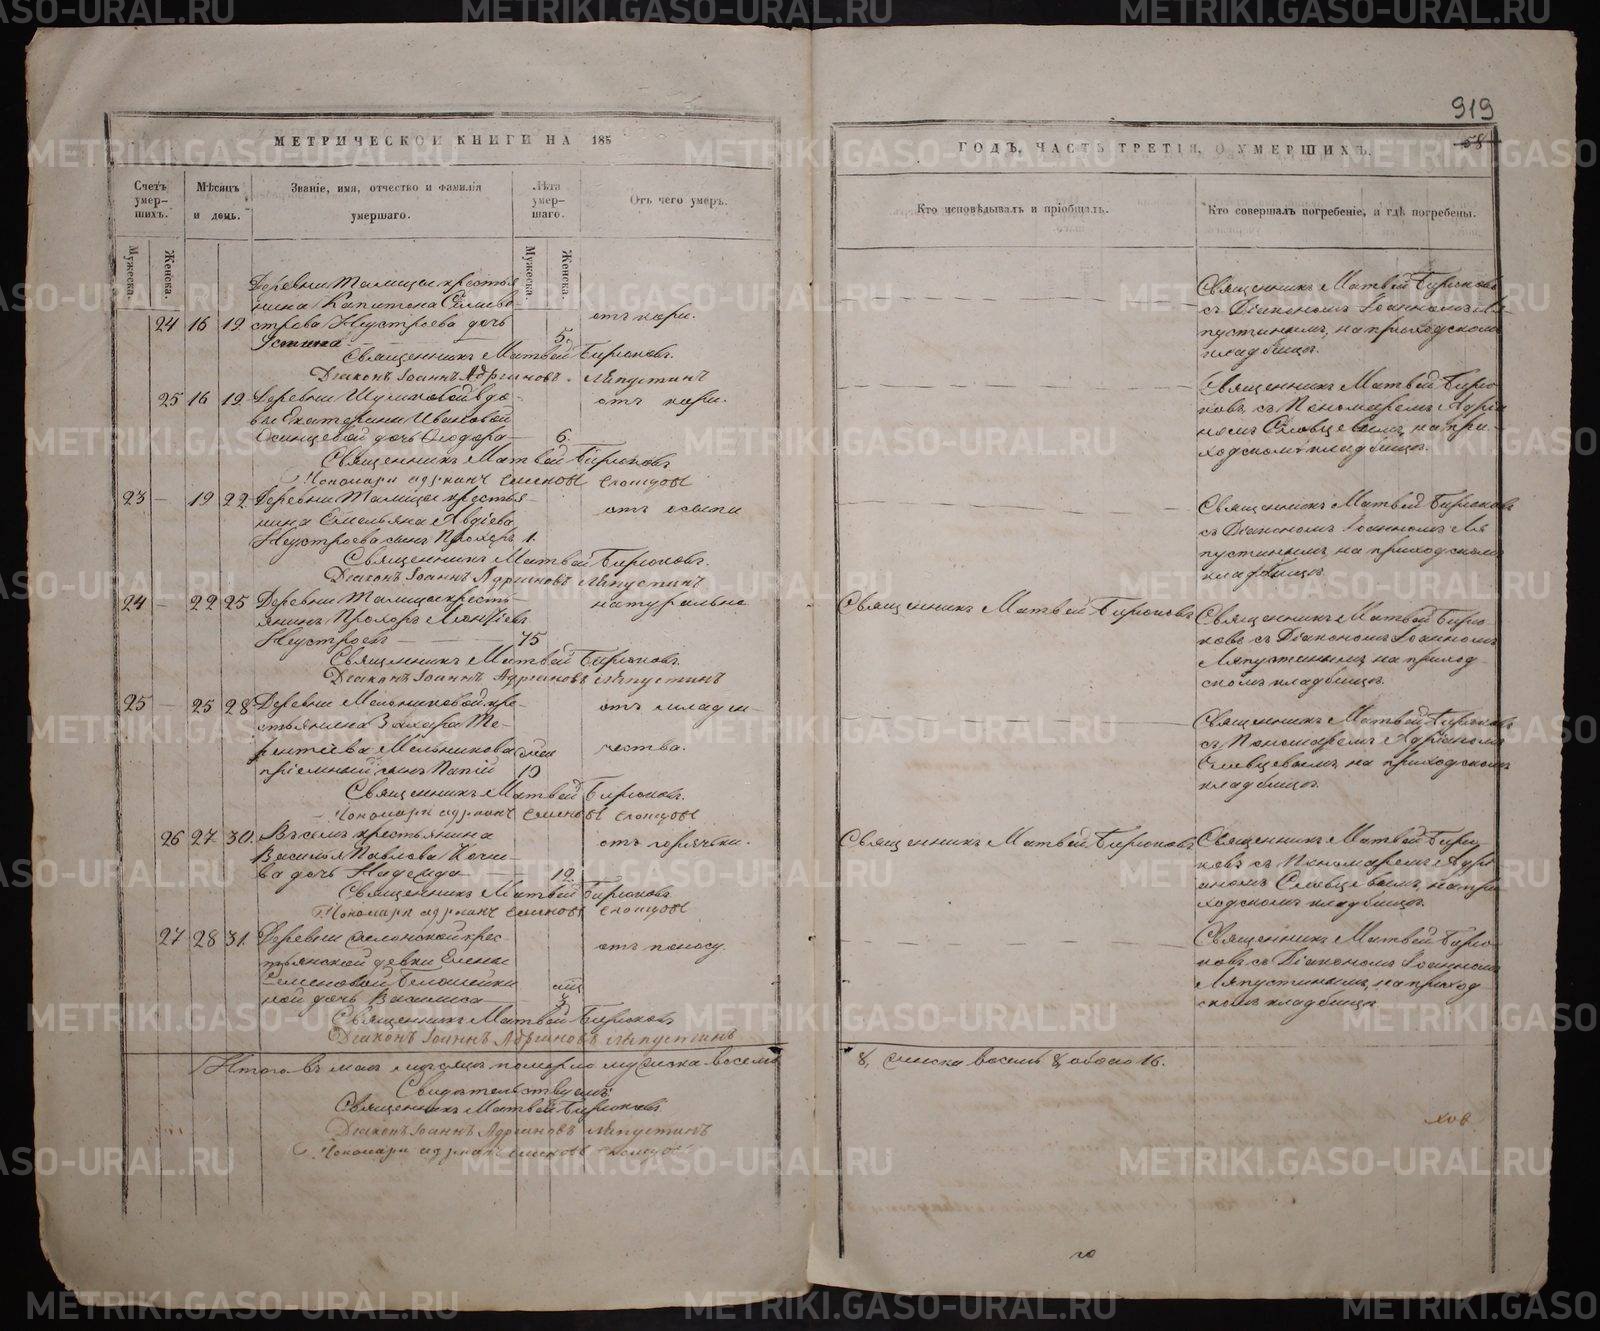 919
58
МЕТРИЧЕСКОЙ КНИГИ НА 185
ГОДЪ, ЧАСТЬ ТРЕТІЯ, О УМЕРШИХЪ.
Счетъ умер-шихъ.
Мѣсяцъ и день.
Званіе, имя, отчество и фамилія умершаго.
Лѣта умер-шаго.
Отъ чего умеръ.
Кто исповѣдывалъ и пріобщалъ.
Кто совершалъ погребеніе, и гдѣ погребены.
Мужеска.
Женска.
Мужеска.
Женска.
Деревни Талицы крестья
нина Капитона Селиве
24 16 19 строва Неустроева дочь
Устина 5 отъ кори.
Священникъ Матвей Бирюковъ.
Діаконъ Іоаннъ Адріановъ Ляпустинъ
Священникъ Матвей Бирюковъ
съ Діакономъ Іоанномъ Ля
пустинымъ, на приходскомъ
кладбище.
25 16 19 Деревни Шуликовой вдо-
вы Екатерины Ивановой
Осинцевой дочь Ѳеодора 6. отъ кори.
Священникъ Матвей Бирюковъ
Пономарь Адрианъ Семеновъ Словцовъ
Священникъ Матвей Бирю
ковъ съ Пономаремъ Адрiа
номъ Словцевымъ, на при-
ходскомъ кладбище.
23 — 19 22 Деревни Талицы крестья-
нина Емельяна Авдіева
Неустроева сынъ Прохоръ 1. отъ оспы
Священникъ Матвей Бирюковъ.
Діаконъ Іоаннъ Адріановъ Ляпустинъ
Священникъ Матвей Бирюковъ
съ Діакономъ Іоанномъ Ля
пустинымъ на приходскомъ
кладбище.
24 — 22 25 Деревни Талицы кресть-
янинъ Прохоръ
Неустроевъ 75 натурально
Священникъ Матвей Бирюковъ.
Діаконъ Іоаннъ Адріановъ Ляпустинъ
Священникъ Матвей Бирюковъ
Священникъ Матвей Бирю
ковъ съ Діакономъ Іоанномъ
Ляпустинымъ, на приход-
скомъ кладбище.
25 — 25 28 Деревни Мельниковой кре-
стьянина Захара Те-
рентьева Мельникова
приемный сынъ Папій 10 отъ младен-
чества.
Священникъ Матвей Бирюковъ.
Пономарь Адрианъ Семеновъ Словцовъ
Священникъ Матвей Бирюковъ
съ Пономаремъ Адріаномъ
Словцевымъ, на приходскомъ
кладбище.
26 27 30 крестьянина
Василья Павлова Кочне-
ва дочь Надежда 12. отъ горячки.
Священникъ Матвей Бирюковъ
Пономарь Адрианъ Семеновъ Словцовъ
Священникъ Матвей Бирюковъ
Священникъ Матвей Бирю
ковъ съ Пономаремъ Адрі
аномъ Словцевымъ, на при
ходскомъ кладбище.
27 28 31. Деревни крес-
тьянской девки Елены
Семеновой
ной дочь Василиса 3 отъ поносу.
Священникъ Матвей Бирюковъ
Діаконъ Іоаннъ Адріановъ Ляпустинъ
Священникъ Матвей Бирю-
ковъ съ Діакономъ Іоанномъ
Ляпустинымъ, на приход
скомъ кладбище.
Итого въ мае месяце померло мужска восемь
8, женска восемь 8, обоего 16.
Свидетельствуемъ:
Священникъ Матвей Бирюковъ
Діаконъ Іоаннъ Адріановъ Ляпустинъ
Пономарь Адрианъ Семеновъ Словцовъ
METRIKI.GASO-URAL.RU